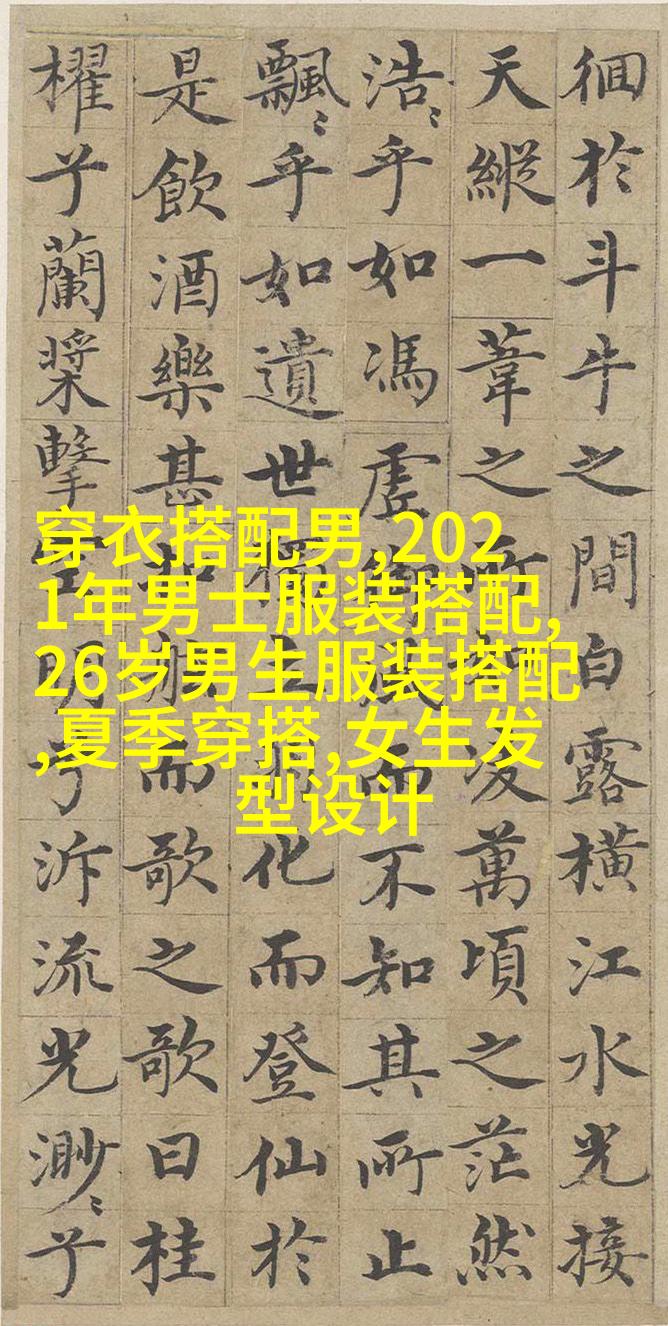 徊於斗牛之間白露橫江水光接
天縱一葦之所如凌萬頃之茫然
浩〻乎如馮虛御風而不知其所止
飄〻乎如遺世獨立羽化而登仙於
是飲酒樂甚扣舷而歌之歌曰桂
櫂兮蘭槳擊空明兮泝流光渺〻兮
穿衣搭配男,202
1年男士服装搭配,
26岁男生服装搭配
,夏季穿搭,女生发
型设计